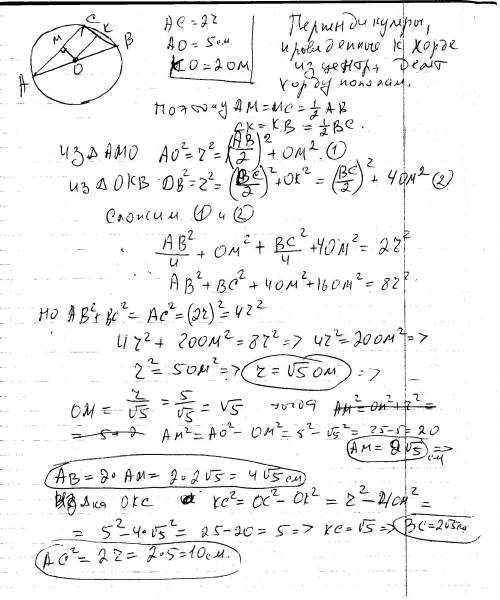 C
M K
B
O
A
AC = 2r
AO = 5см
KO = 2OM
Перпендикуляры,
проведённые к хорде
из центра делят
хорду пополам.
Поэтому AM = MC = 1/2 AB
CK = KB = 1/2 BC.
Из △AMO AO² = r² = (AB/2)² + OM² (1)
Из △OKB OB² = r² = (BC/2)² + OK² = (BC/2)² + 4OM² (2)
Сложим (1) и (2)
AB²/4 + OM² + BC²/4 + 4OM² = 2r²
AB² + BC² + 4OM² + 16OM² = 8r²
Но AB² + BC² = AC² = (2r)² = 4r²
4r² + 20OM² = 8r² => 4r² = 20OM² =>
r² = 5OM² => r = √5 OM =>
OM = r/√5 = 5/√5 = √5 тогда AM² = OM² + r² =
= 5 + 2 AM² = AO² - OM² = 5² - √5² = 25 - 5 = 20
AM = 2√5 см =>
AB = 2·AM = 2·2√5 = 4√5 см
Из △ка OKC KC² = OC² - OK² = r² - 4OM² =
= 5² - 4·√5² = 25 - 20 = 5 => KC = √5 => BC = 2√5 см
AC² = 2r = 2·5 = 10 см.